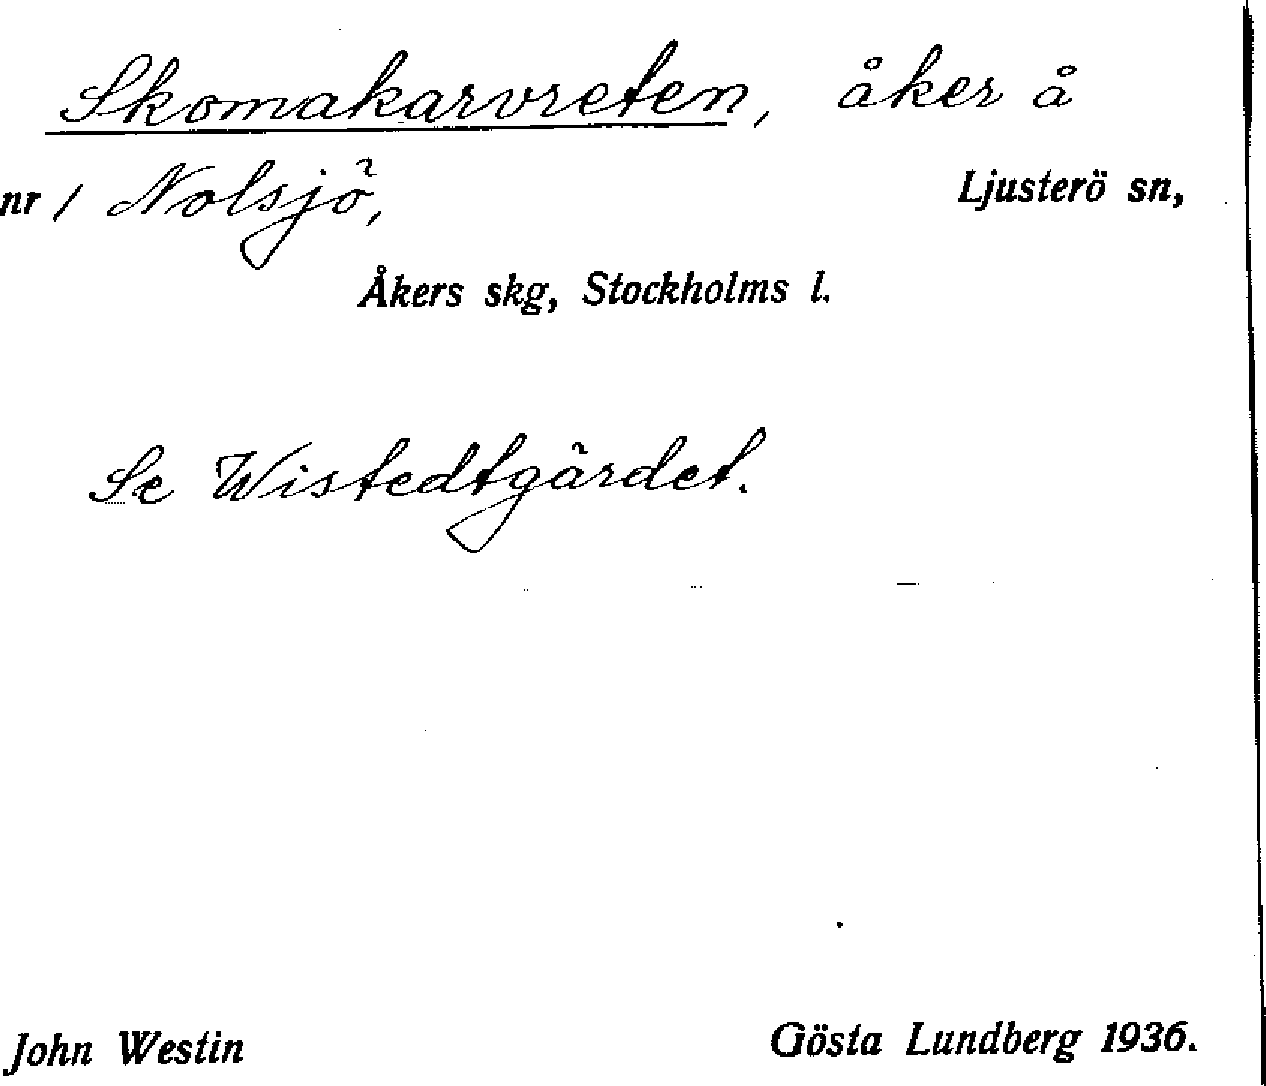 Skomakarvreten, åker å
nr 1 Nolsjö, Ljusterö sn,
Åkers skg, Stockholms l.
Se Wistedtgärdet.
John Westin Gösta Lundberg 1936.